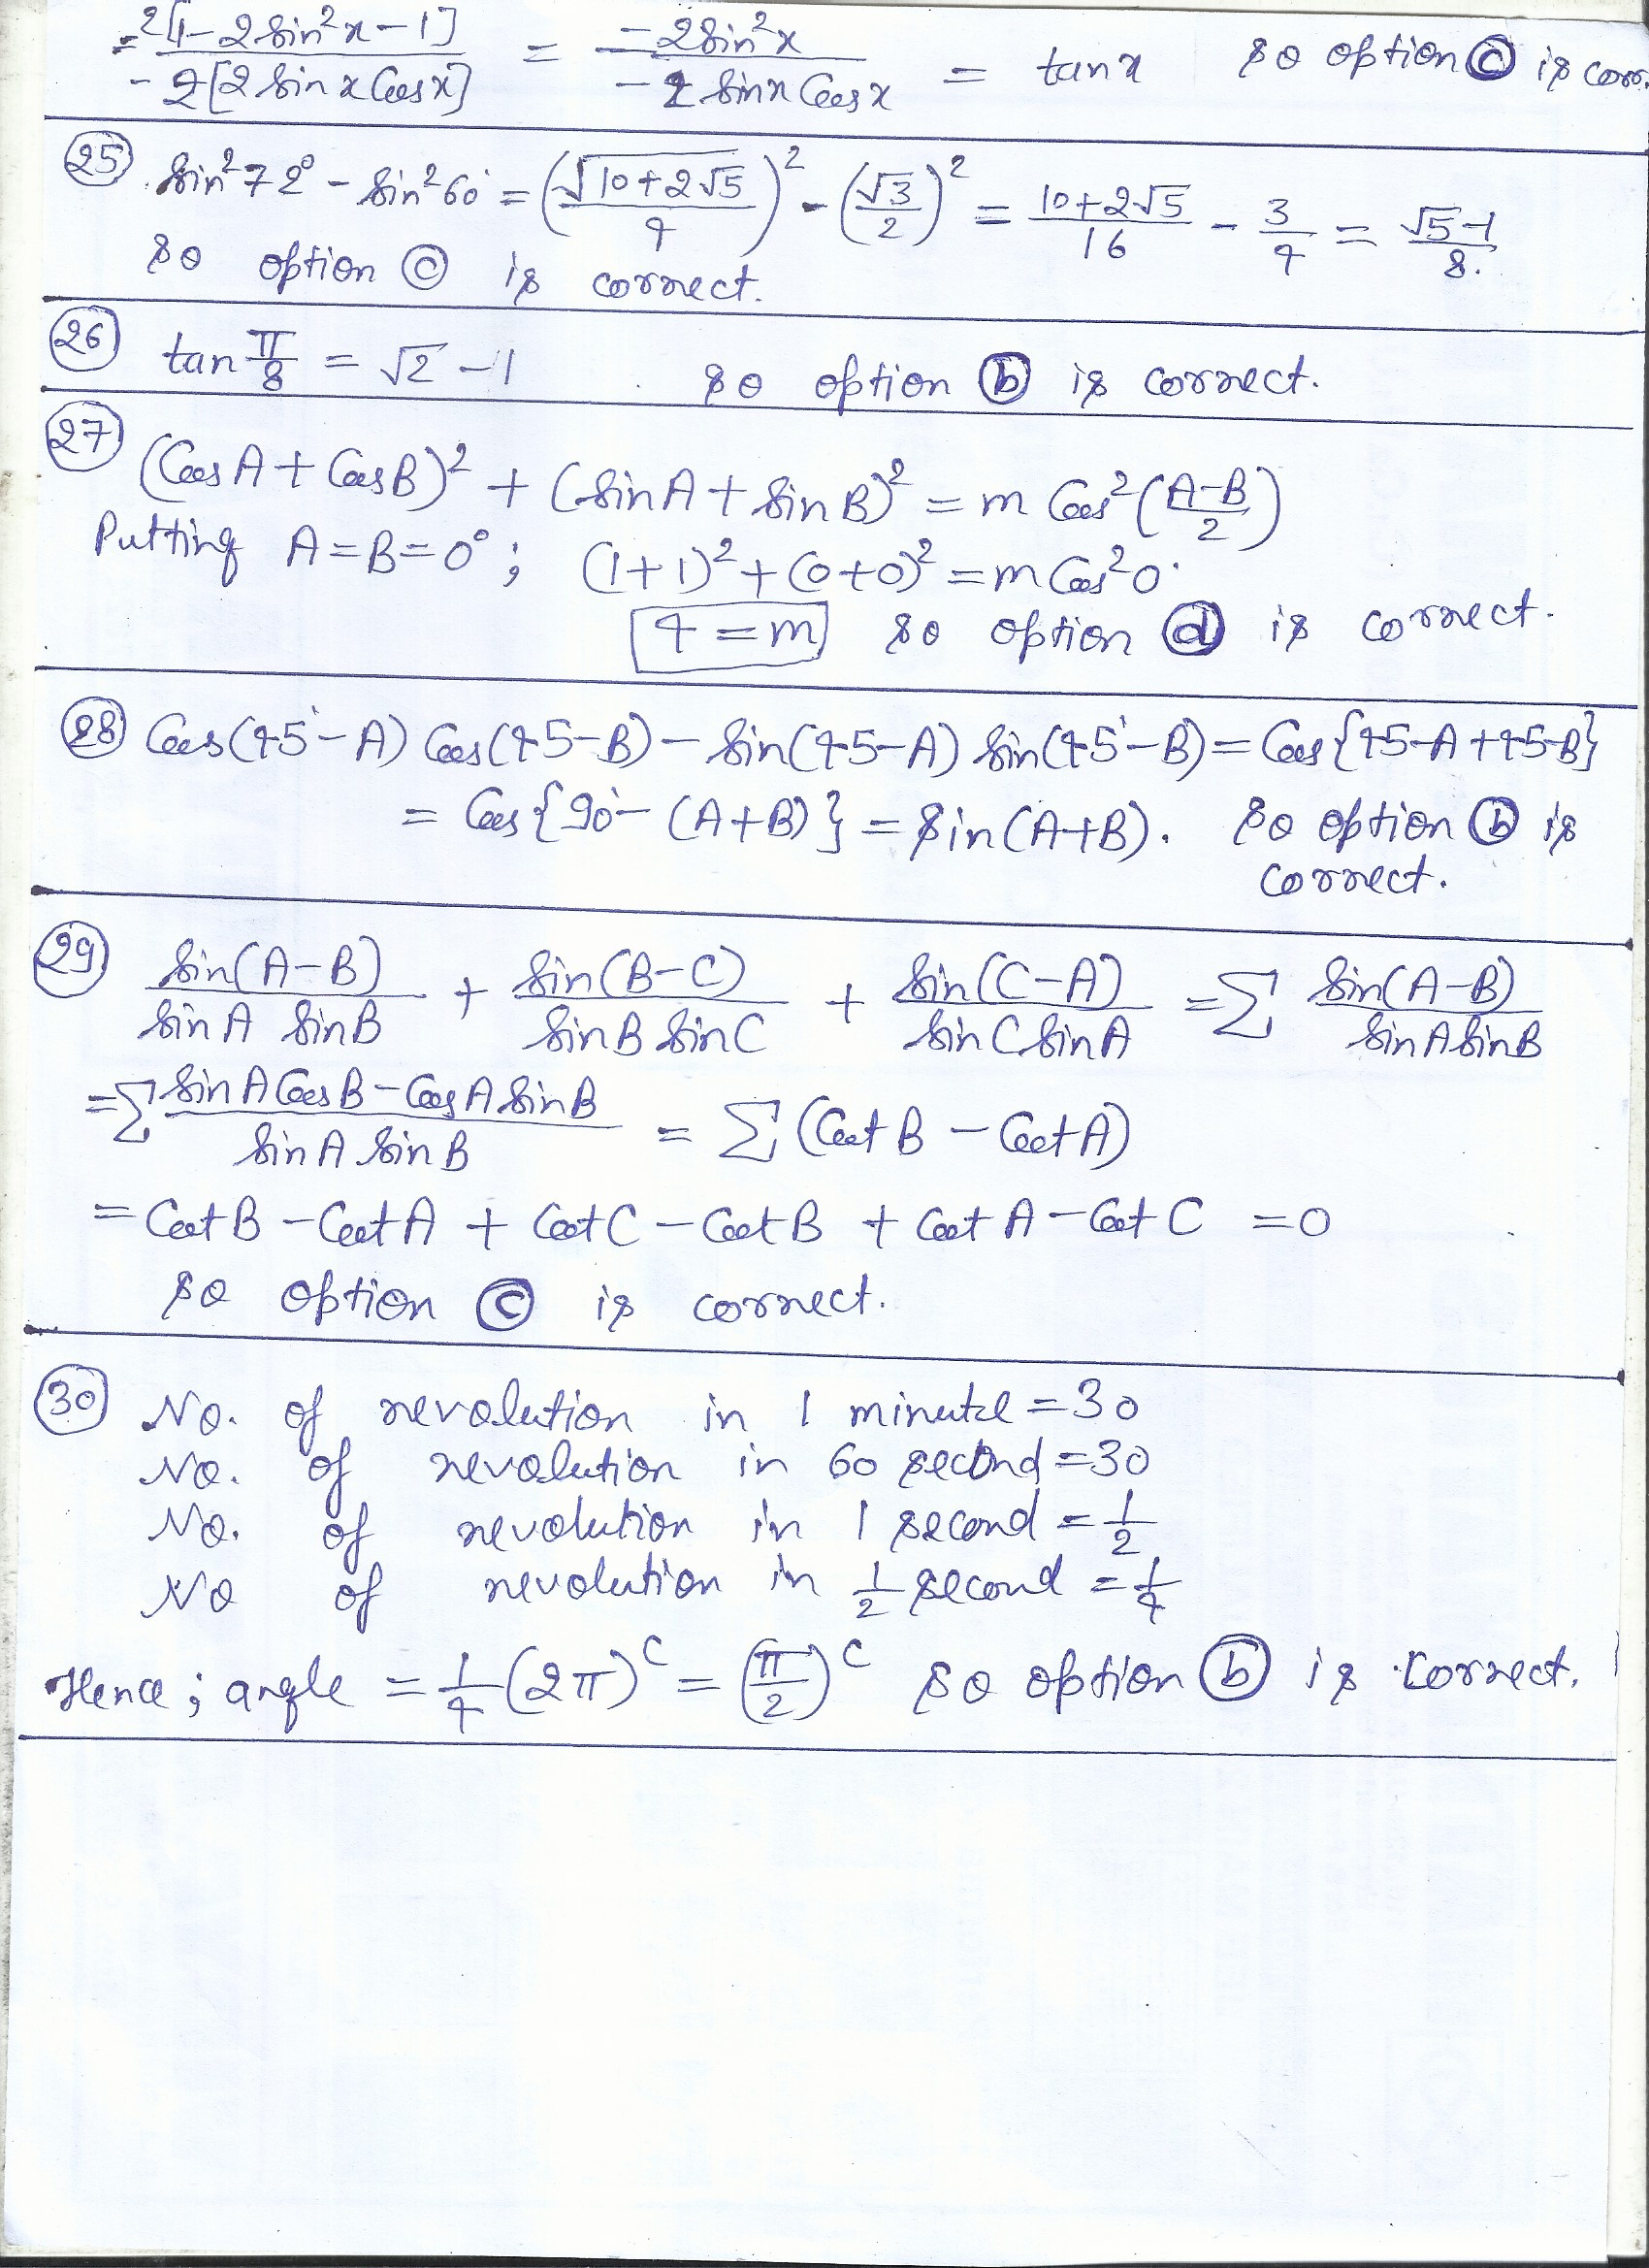 = 2[1-2sin²x-1] / -2[2sinx Cosx] = -2sin²x / -2sinx Cosx = tanx so option (c) is corr.
(25) sin²72° - sin²60° = (√(10+2√5) / 4)² - (√3/2)² = (10+2√5)/16 - 3/4 = (√5-1)/8.
so option (c) is correct.
(26) tan π/8 = √2 - 1 so option (b) is correct.
(27) (Cos A + Cos B)² + (sin A + sin B)² = m Cos²((A-B)/2)
Putting A=B=0°; (1+1)² + (0+0)² = m Cos²0°
4 = m so option (d) is correct.
(28) Cos(45°-A) Cos(45-B) - sin(45-A) sin(45°-B) = Cos{45-A+45-B}
= Cos{90°-(A+B)} = sin(A+B). so option (b) is
correct.
(29) sin(A-B) / sinA sinB + sin(B-C) / sinB sinC + sin(C-A) / sinC sinA = Σ sin(A-B) / sinA sinB
= Σ (sinA CosB - CosA sinB) / sinA sinB = Σ (Cot B - Cot A)
= Cot B - Cot A + Cot C - Cot B + Cot A - Cot C = 0
so option (c) is correct.
(30) No. of revolution in 1 minute = 30
No. of revolution in 60 second = 30
No. of revolution in 1 second = 1/2
No of revolution in 1/2 second = 1/4
Hence; angle = 1/4 (2π)ᶜ = (π/2)ᶜ so option (b) is correct.